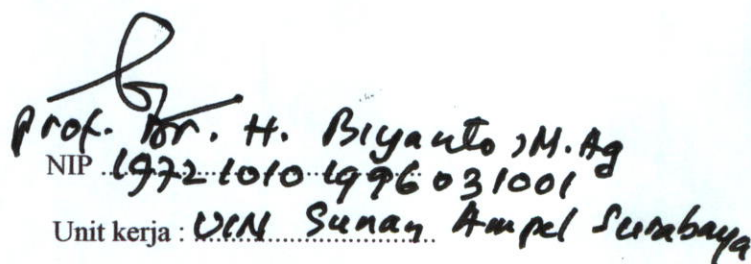 Prof. Dr. H. Biyanto, M.Ag
NIP 197210101996031001
Unit kerja : UIN Sunan Ampel Surabaya